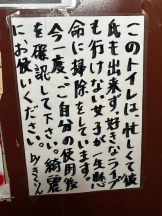 このトイレは、忙しくて彼
氏も出来ず、好きなライブ
も行けない女子が一生懸
命に掃除をしています。
今一度、ご自分の使用後
を確認して下さい。綺麗
にお使いください。